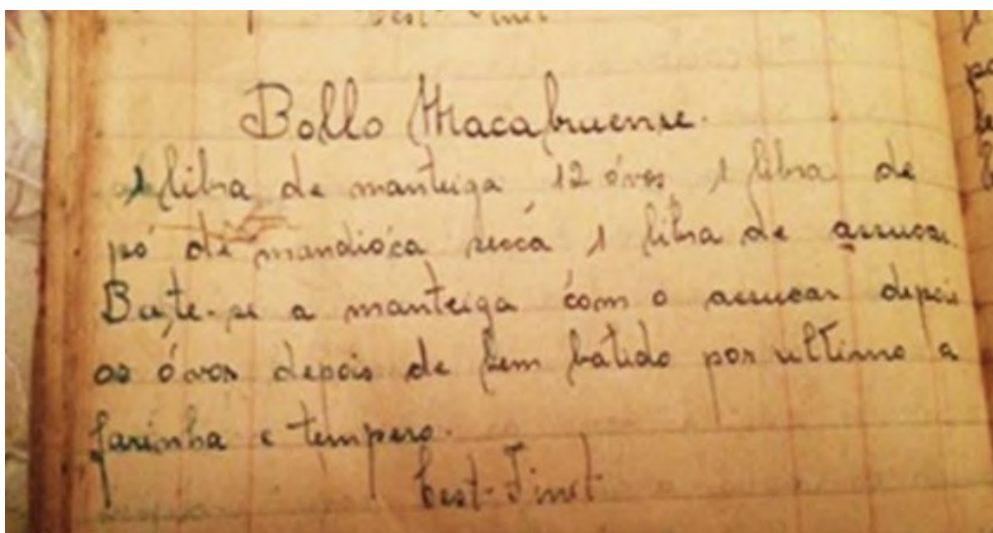 Bollo Macabruense.
1 libra de manteiga 12 óvos 1 libra de
pó de mandióca secca 1 libra de assucar
Bate-se a manteiga com o assucar depois
os óvos depois de bem batido por ultimo a
farinha e tempero.